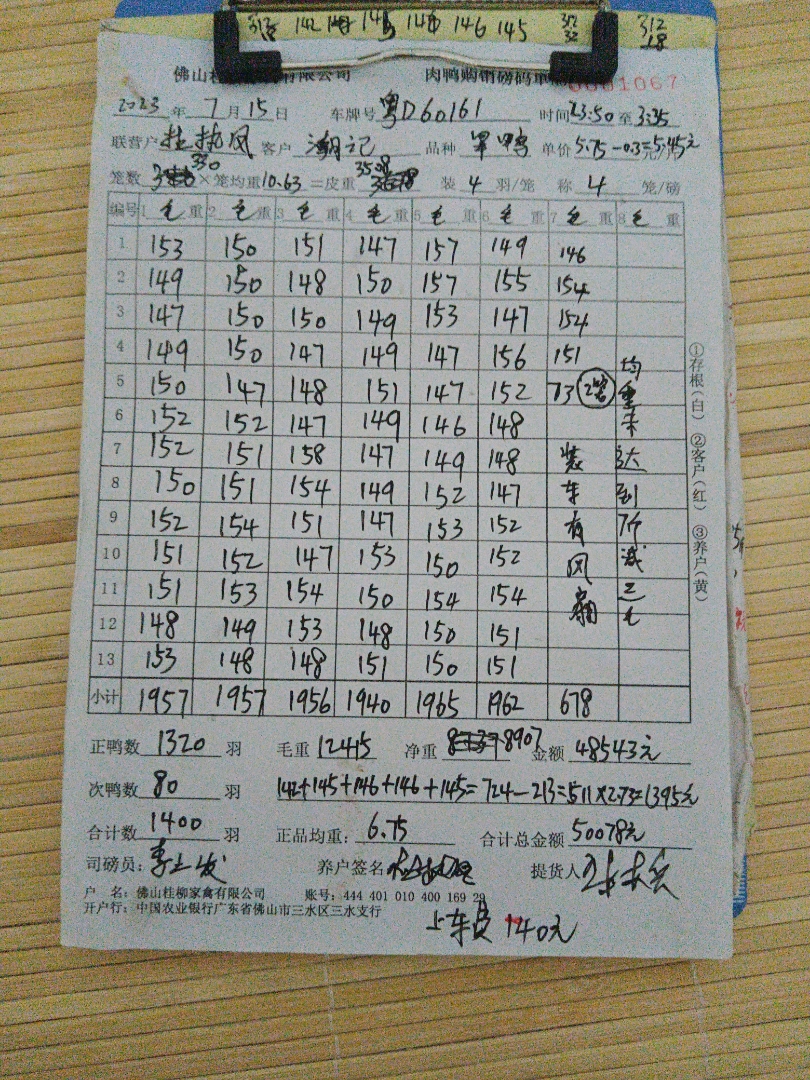 312 142 145 146 146 145 312
佛山桂柳家禽有限公司 肉鸭购销磅码单 0001067
2023年7月15日 车牌号 粤D60161 时间23:50至3:35
联营户 杜执风 客户 潮记 品种 单鸭 单价5.75-0.3=5.45元/斤
笼数 330 ×笼均重10.63=皮重 3508 装4羽/笼 称4笼/磅
编号 1毛重 2毛重 3毛重 4毛重 5毛重 6毛重 7毛重 8毛重
1 153 150 151 147 157 149 146
2 149 150 148 150 157 155 154
3 147 150 150 149 153 147 154
4 149 150 147 149 147 156 151
5 150 147 148 151 147 152 73 2笼
6 152 152 147 149 146 148
7 152 151 158 147 149 148
8 150 151 154 149 152 147
9 152 154 151 147 153 152
10 151 152 147 153 150 152
11 151 153 154 150 154 154
12 148 149 153 148 150 151
13 153 148 148 151 150 151
小计 1957 1957 1956 1940 1965 1962 678
装车有风扇
均重未达到所减三毛
①存根(白) ②客户(红) ③养户(黄)
正鸭数 1320 羽 毛重 12415 净重 8907 金额 48543元
次鸭数 80 羽 142+145+146+146+145=724-213=511×2.73=1395元
合计数 1400 羽 正品均重: 6.75 合计总金额 50078元
司磅员: 养户签名 提货人
户 名: 佛山桂柳家禽有限公司 账号: 444 401 010 400 169 29
开户行: 中国农业银行广东省佛山市三水区三水支行
上车费 140元